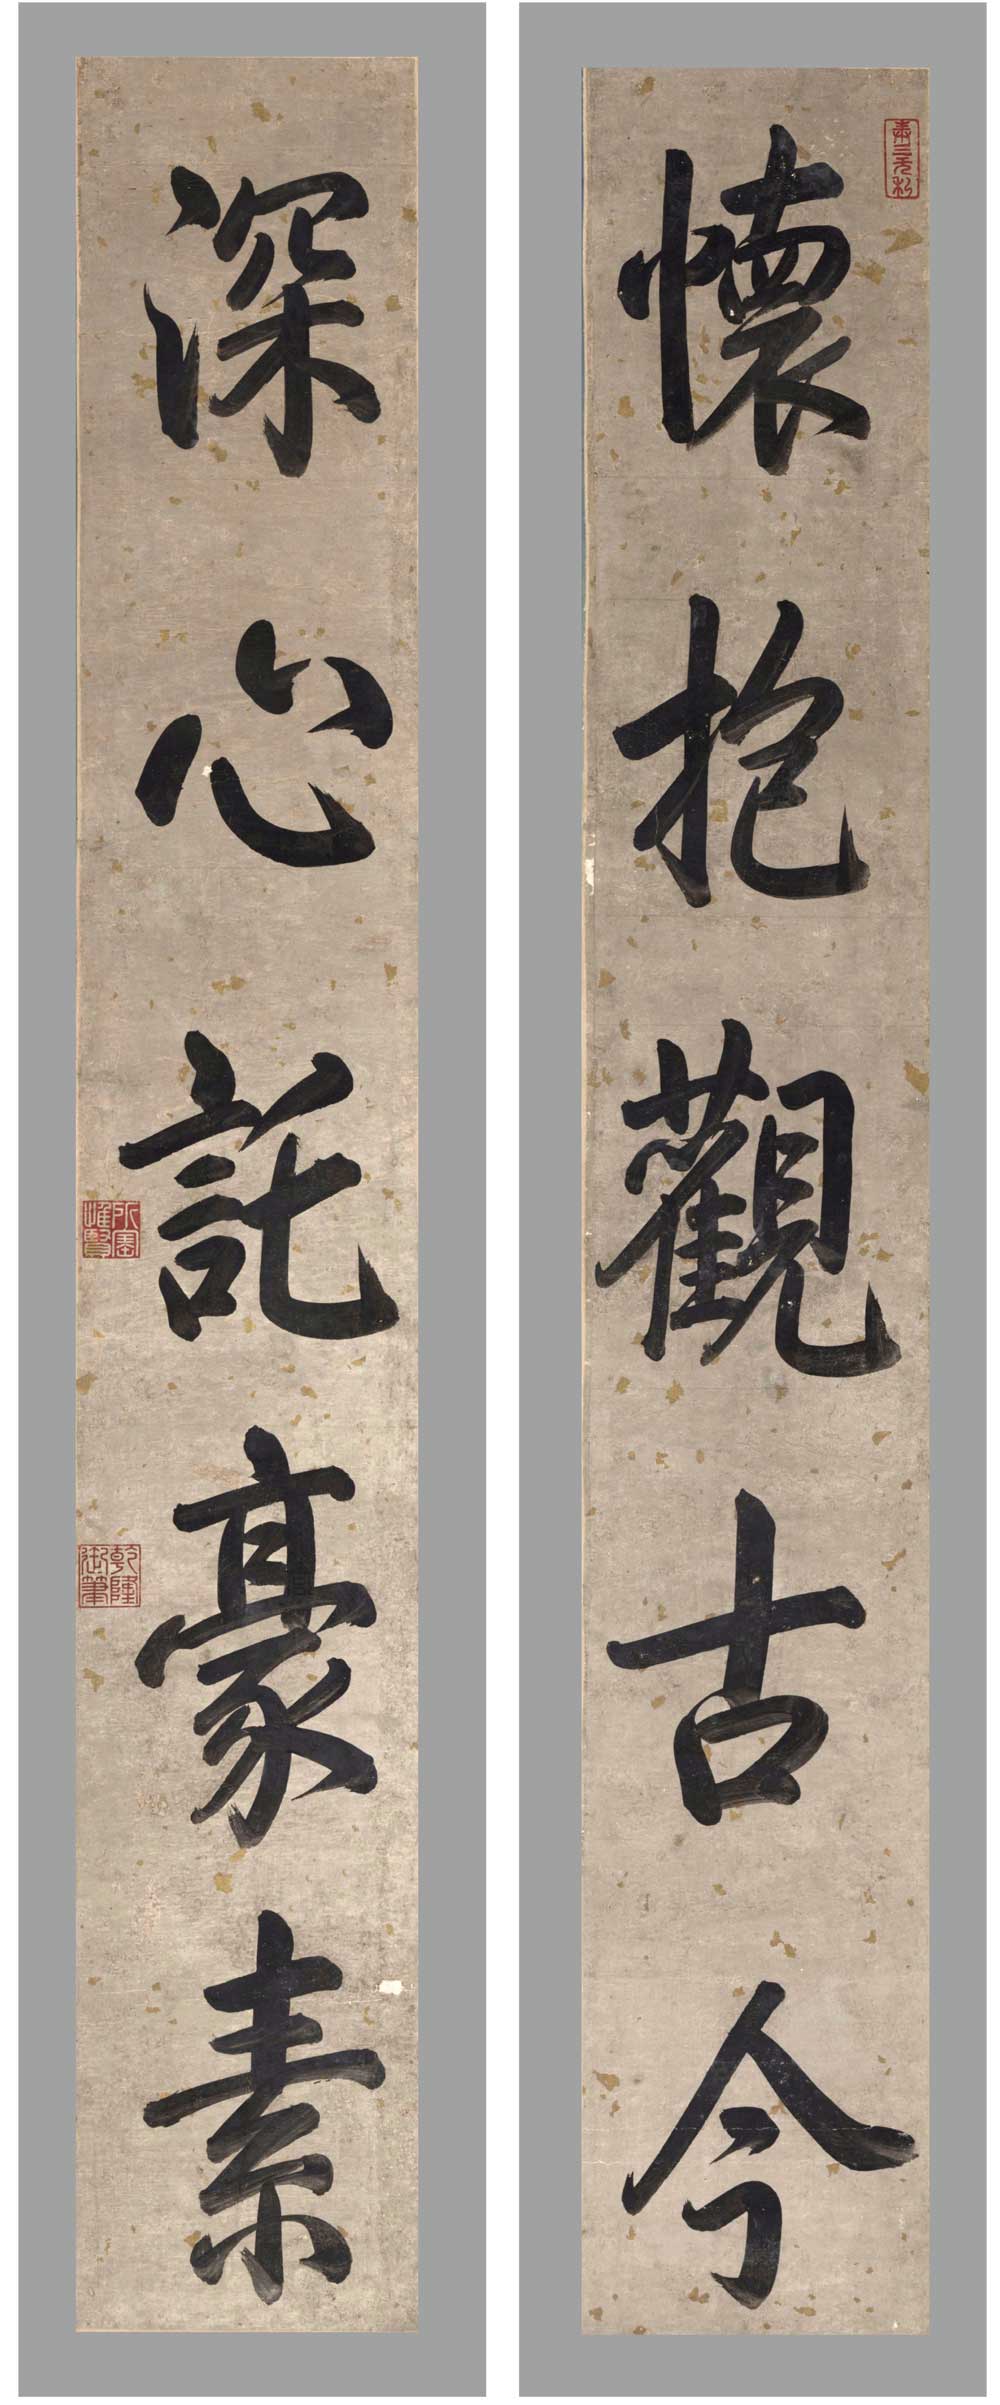 懷抱觀古今
深心託豪素
奉三無私
所寶惟賢
乾隆御筆